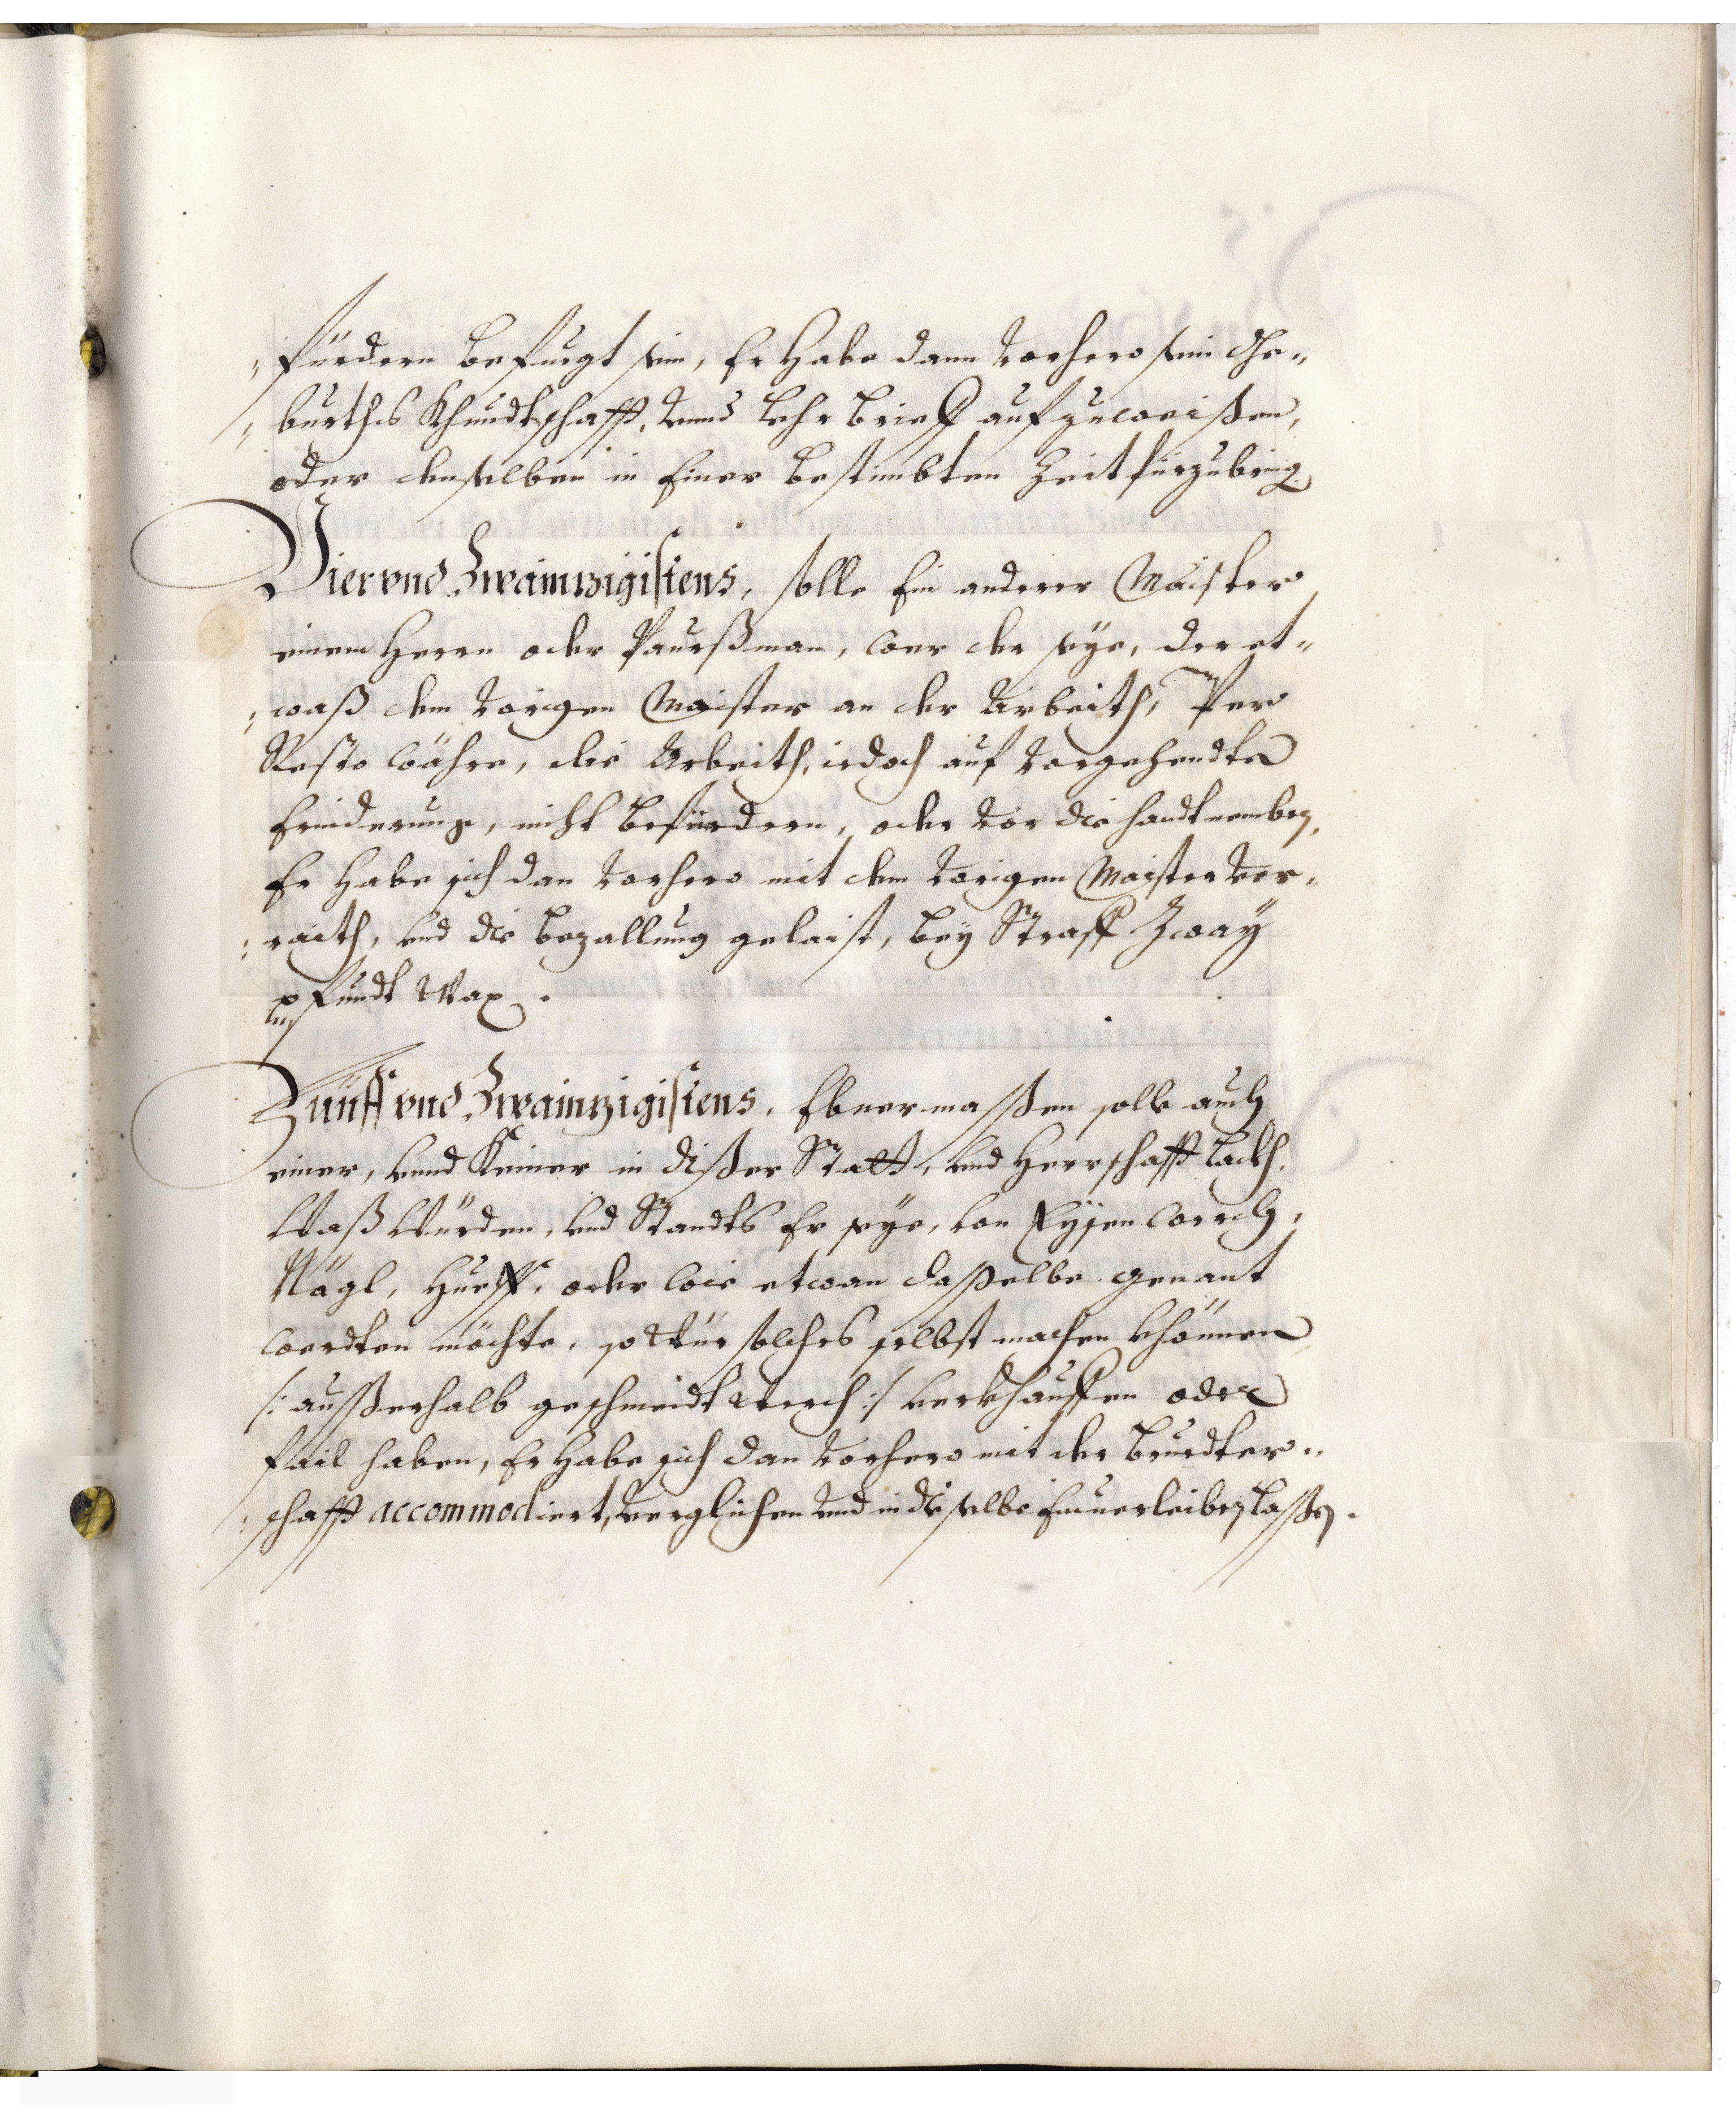 „fürdern befuegt sein, Er habe dann vorhero sein Ge„
„burths Khundtschafft, vnnd Lehr brieff aufzuweißen,
oder denselben in Einer bestimbten Zeit fürzubring.
Vier vnd Zwaintzigistens, solle Ein anderer Maister
einem Herrn oder Paurßman, wer der seye, der et„
„waß dem vorigen Maister an der Arbeith, Per
Resto währe, die Arbeith, iedoch auf vorgehendte
Erinderung, nicht befürdern, oder vor die handt nemben,
Er habe sich dan vorhero mit dem vorigen Maister ver„
„raith, vnd die bezallung gelaist, bey Straff Zway
pfundt Wax.
Fünff vnd Zwaintzigistens, Ebnermassen solle auch
einer, vnnd Keiner in dißer Statt, vnd Herrschafft Lackh,
Waß Würden, vnd Standts Er seye, von Eysen werch,
Nägl, Hueff, oder wie etwan dasselbe genant
werdten möchte, so Wür solches selbst machen khönnen
/: ausserhalb geschmeidt werch :/ verkhauffen oder
fail haben, Er habe sich dan vorhero mit der bruedter„
„schafft accommodiert, verglichen vnd in dieselbe Einuerleiben lassen.